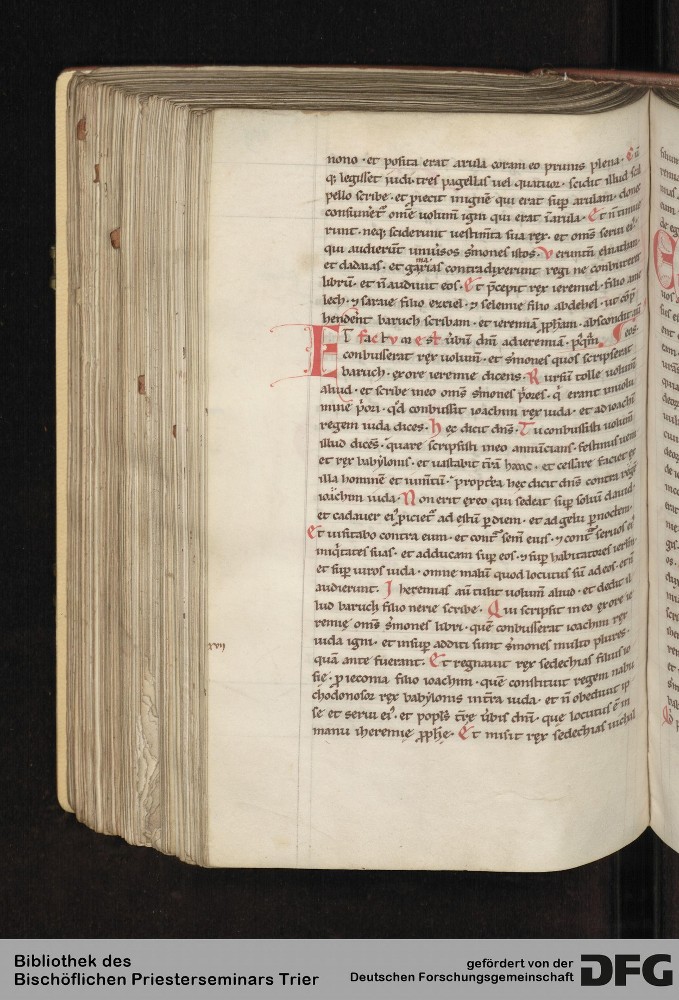 nono · et posita erat arula coram eo prunis plena · Cū
q; legisset iudi · tres pagellas uel quatuor · scidit illud scal
pello scribe · et proiecit in ignē qui erat sup̄ arulam · donec
consumeret̄ omē uolum̄ igni qui erat ī arula · Et n̄ timue
runt · neq; sciderunt uestim̄ta sua rex · et om̄s serui ei᾽
qui audierūt uniū᾽sos s᾽mones istos · Veruntm̄ elnathan ·
et dalaias · et gamarias contradixerunt regi ne conbureret
librū · et n̄ audiuit eos · Et p̄cepit rex ieremiel · filio ame
lech · ⁊ saraie filio ezriel · ⁊ selemie filio abdehel · ut cōp̄
henderent baruch scribam · et ieremiā p̄ph̄am · abscondit
Et factum est ūbum dn̄i ad ieremiā · p᾽q̄m eos ·
conbusserat rex uolum̄ · et s᾽mones quos scripserat
baruch · ex ore ieremie dicens · Rursū tolle uolum̄
aliud · et scribe in eo om̄s s᾽mones p᾽ores · q᾽ erant in uolu
mine p᾽ori · q᾽d conbussit ioachim rex iuda · et ad ioachī
regem iuda dices · Hec dicit dn̄s · Tu conbussisti uolum̄
illud dicēs · quare scripsisti in eo annūcians · festinus ueni
et rex babylonis · et uastabit t̄rā hanc · et cessare faciet ex
illa hominē et iumtū · propt̄ea hec dicit dn̄s contra regē
ioachim iuda · Non erit ex eo qui sedeat sup̄ soliū dauid ·
et cadauer ei᾽ p̄iciet᾽ ad estū p̄ diem · et ad gelu p̄ noctem ·
Et uisitabo contra eum · et cont᾽ sem̄ eius · ⁊ cont᾽ seruos ei᾽
iniq̄tates suas · et adducam sup̄ eos · ⁊ sup̄ habitatores ierl̄m
et sup̄ uiros iuda · omne malū quod locutus sū ad eos · et n̄
audierunt · Iheremias aū tulit uolum̄ aliud · et dedit il
lud baruch filio nerie scribe · Qui scripsit in eo ex ore ie
remie om̄s s᾽mones libri · quē conbusserat ioachim rex
iuda igni · et insup̄ additi sunt s᾽mones multo plures ·
xvii
quā ante fuerant · Et regnauit rex sedechias filius io
sie · p᾽ ieconia filio ioachim · quē constituit regem nabu
chodonosor rex babylonis in t̄ra iuda · et n̄ obediuit ip
se et serui ei᾽ · et popl̄s t̄re ūbis dn̄i · que locutus ē in
manu iheremie p̄ph̄e · Et misit rex sedechias iuchal
Bibliothek des
Bischöflichen Priesterseminars Trier
gefördert von der
Deutschen Forschungsgemeinschaft
DFG